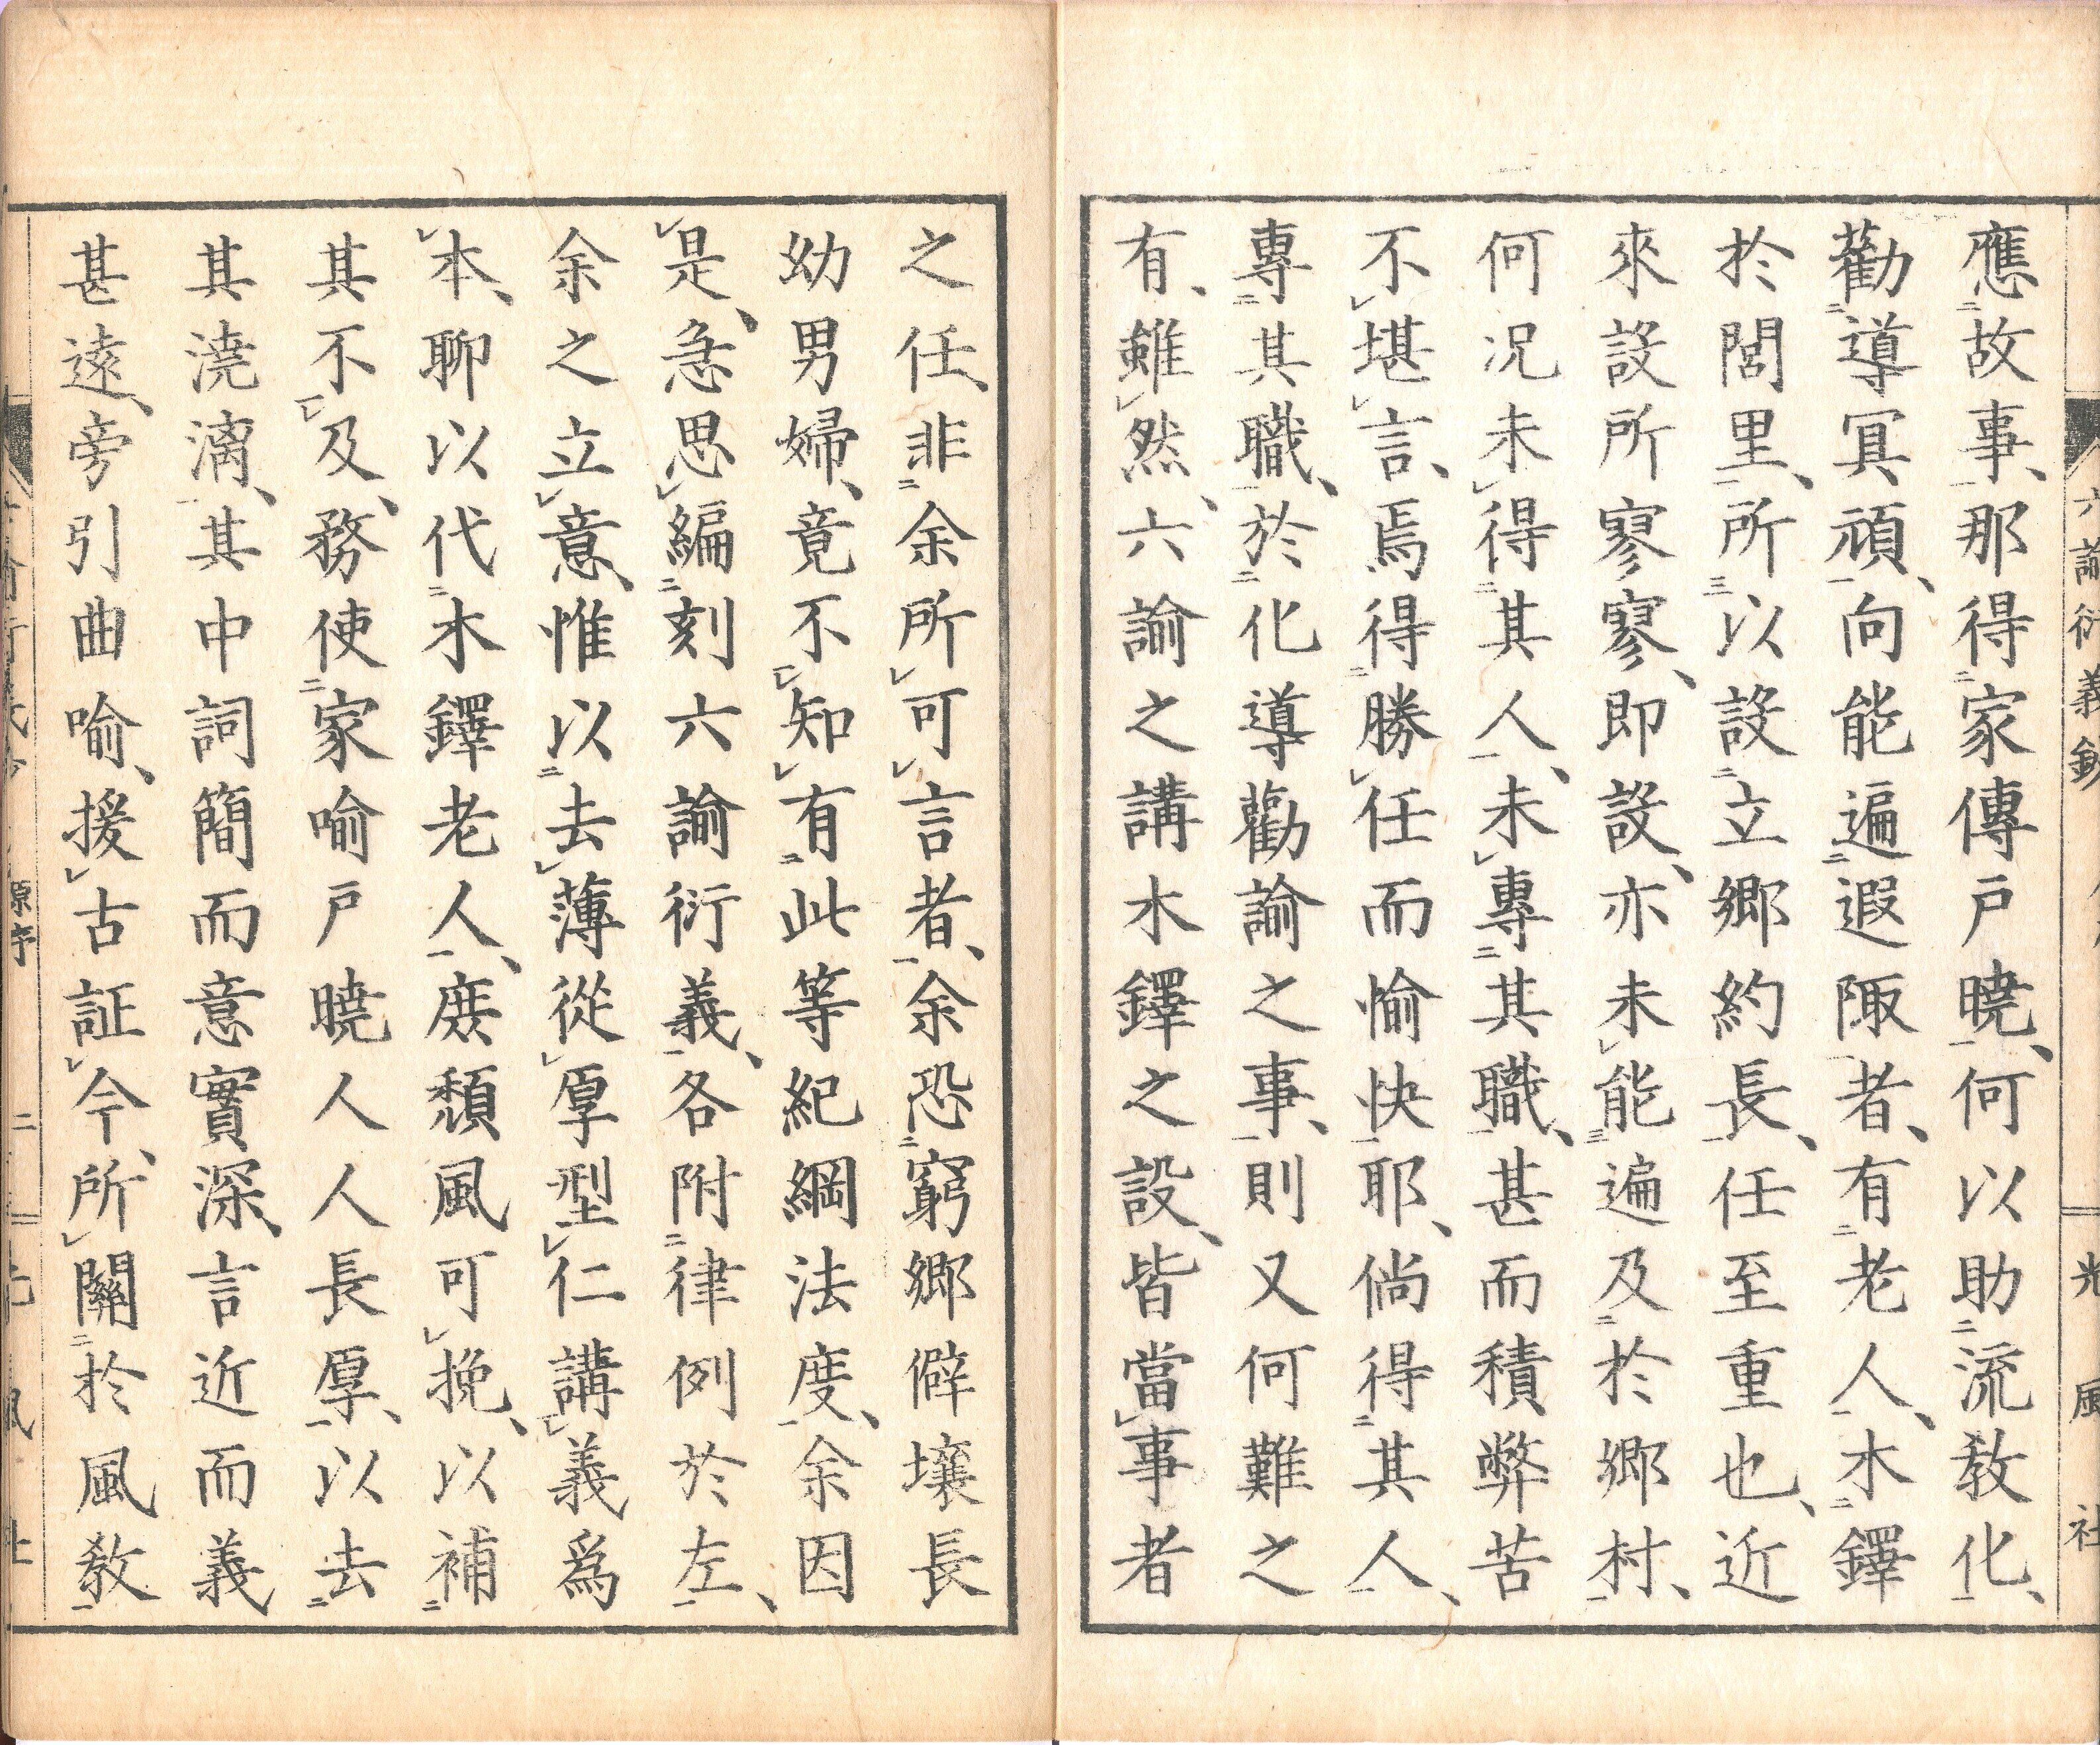 應故事、那得家傳戸曉、何以助流教化、
勸導冥頑、向能遍遐陬者、有老人、木鐸
於閭里、所以設立郷約長、任至重也、近
來設所寥寥、即設、亦未能遍及於郷村、
何況未得其人、未專其職、甚而積弊苦
不堪言、焉得勝任而愉快耶、倘得其人、
專其職、於化導勸諭之事、則又何難之
有、雖然、六諭之講木鐸之設、皆當事者
之任、非余所可言者、余恐窮郷僻壤長
幼男婦、竟不知有此等紀綱法度、余因
是、急思編刻六諭衍義、各附律例於左、
余之立意、惟以去薄從厚型仁講義爲
本、聊以代木鐸老人、庶頽風可挽、以補
其不及、務使家喻戸曉人人長厚、以去
其澆漓、其中詞簡而意實深、言近而義
甚遠、旁引曲喻、援古証今、所關於風教
源序
二